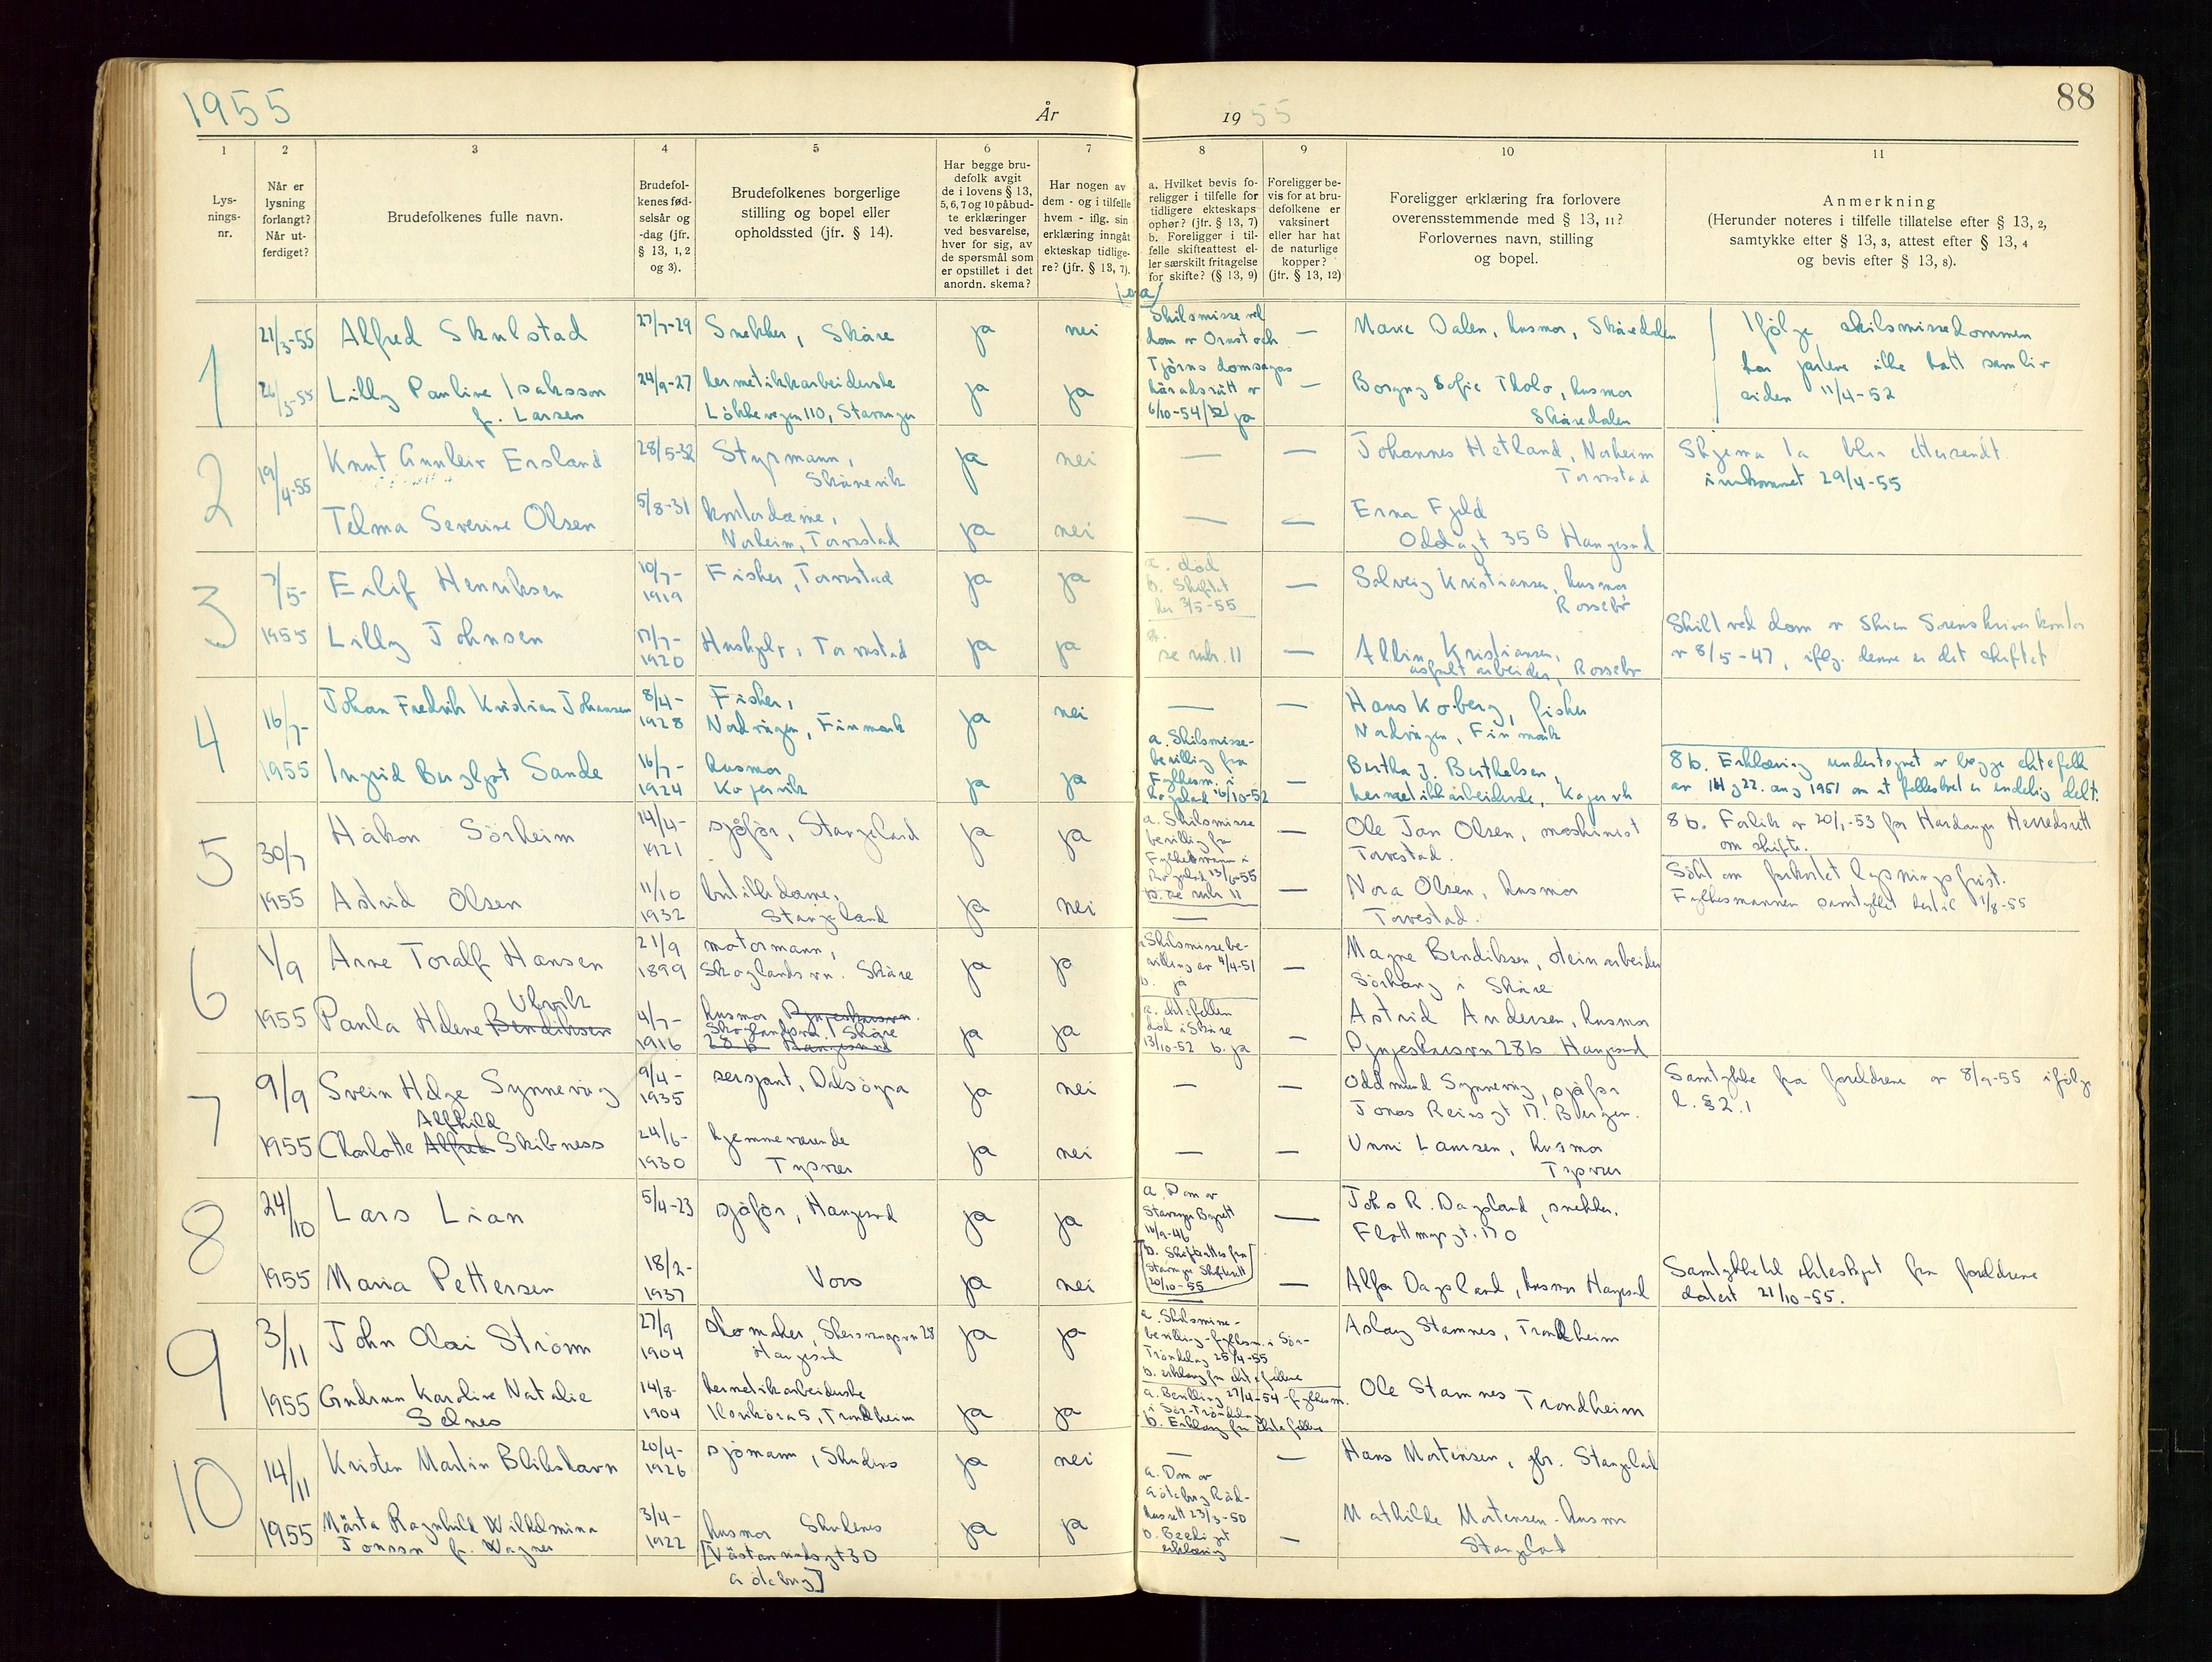 1955
År
1955
88
1
2
3
4
5
6
7
8
9
10
11
Lys-
nings-
nr.
Når er
lysning
forlangt?
Når ut-
ferdiget?
Brudefolkenes fulle navn.
Brudefol-
kenes fød-
selsår og
-dag (jfr.
§ 13, 1, 2
og 3).
Brudefolkenes borgerlige
stilling og bopel eller
opholdssted (jfr. § 14).
Har begge bru-
defolk avgit
de i lovens § 13,
5, 6, 7 og 10 påbud-
te erklæringer
ved besvarelse,
hver for sig, av
de spørsmål som
er opstillet i det
anordn. skema?
Har nogen av
dem - og i tilfelle
hvem - iflg. sin
erklæring inngåt
ekteskap tidlige-
re? (jfr. § 13, 7).
a. Hvilket bevis fo-
religger i tilfelle for
tidligere ekteskaps
ophør? (jfr. § 13, 7)
b. Foreligger i til-
felle skifteattest el-
ler særskilt fritagelse
for skifte? (§ 13, 9)
Foreligger be-
vis for at bru-
defolkene er
vaksinert
eller har hat
de naturlige
kopper?
(jfr. § 13, 12)
Foreligger erklæring fra forlovere
overensstemmende med § 13, 11?
Forlovernes navn, stilling
og bopel.
Anmerkning
(Herunder noteres i tilfelle tillatelse efter § 13, 2,
samtykke efter § 13, 3, attest efter § 13, 4
og bevis efter § 13, 8).
1
21/3-55
Alfred Skulstad
27/7-29
Snekker, Skåre
ja
nei
Skilsmisse ved
dom av Orust och
Tjörns domsagas
häradsrätt av
6/10-54
ja
—
Marie Dalen, husmor, Skåredalen
Ifölge skilsmissedommen
har partene ikke hatt samliv
siden 11/4-52
26/3-55
Lilly Pauline Isaksson
f. Larsen
24/9-27
hermetikkarbeiderske
Lökkevegen 110, Stavanger
ja
ja
—
Borgny Sofie Tholo, husmor
Skåredalen
2
19/4-55
Knut Gunleiv Ersland
28/5-32
Styrmann,
Skånevik
ja
nei
—
—
Johannes Hetland, Norheim
Torvastad
Skjema 1a blir ettersendt
innkommet 29/4-55
Telma Severine Olsen
5/8-31
kontordame,
Norheim, Torvastad
ja
nei
—
—
Erna Fjeld
Oddagt 35B Haugesund
3
7/5-
1955
Eilif Henriksen
10/7-
1919
Fisker, Torvastad
ja
ja
a. död
b. Skiftet
3/5-55
—
Solveig Kristiansen, husmor
Rossebö
Lilly Johnsen
17/7-
1920
Hushjelp, Torvastad
ja
ja
a.
se rubr. 11
—
Albin Kristiansen,
asfaltarbeider, Rossebö
Skilt ved dom av Skien Sorenskriverkontor
av 8/5-47, iflg. denne er det skiftet
4
16/7-
1955
Johan Fredrik Kristian Johansen
8/4-
1928
Fisker,
Nordvågen, Finmark
ja
nei
—
—
Hans Koberg, fisker
Nordvågen, Finmark
Ingrid Bergljot Sande
16/7-
1924
husmor
Kopervik
ja
ja
a. Skilsmisse-
bevilling fra
Fylkesm. i
Rogaland 16/10-52
—
Bertha J. Berthelsen,
hermetikkarbeiderske, Kopervik
8b. Erklæring undertegnet av begge ektefolk
av 22. aug 1951 om at fellesboet er endelig delt.
5
30/7
1955
Håkon Sörheim
14/4-
1921
sjåför, Stangeland
ja
ja
a. Skilsmisse
bevilling fra
Fylkesmann i
Rogaland 13/6-55
b. se rubr 11
—
Ole Jan Olsen, maskinist
Torvestad.
8b. Forlik av 20/1-53 for Hardanger Herredsrett
om skifte.
Astrid Olsen
11/10
1932
butikkdame,
Stangeland
ja
nei
—
—
Nora Olsen, husmor
Torvestad.
Sökt om forkortet lysningsfrist.
Fylkesmannen samtykket hertil 1/8-55
6
1/9
1955
Arne Toralf Hansen
21/9
1899
motormann,
Skoglandsvn. Skåre
ja
ja
Skilsmissebe-
villing av 4/4-51
b. ja
—
Magne Bendiksen, steinarbeider
Sörhaug i Skåre
Ulvvik
Paula Helene Bendiksen
4/7-
1916
husmor Djupesksvn.
Skoglandsvn. i Skåre
28b Haugesund
ja
ja
a. ektefellen
död i Skåre
13/10-52 b. ja
—
Astrid Andersen, husmor
28b Haugesund
7
9/9
1955
Svein Helge Synnevåg
9/4-
1935
sersjant, Dalsöyra
ja
nei
—
—
Oddmund Synnevåg, sjåför
Jonas Reinsgt 17. Bergen.
Samtykke fra foreldrene av 8/9-55 ifölge
l. § 2.1
Alfhild
Charlotte Alfred Skibness
24/6-
1930
hjemmeværende
Tysvær
ja
nei
—
—
Unni Laursen, husmor
Tysvær
8
24/10
1955
Lars Lian
5/4-23
sjåför, Haugesund
ja
ja
a. Dom av
Stavanger Byrett
16/9-46
b. Skifteattest fra
Stavanger Skifterett
20/10-55
—
Johs R. Dagsland, snekker.
Maria Pettersen
18/2-
1937
Vors
ja
nei
—
Alfa Dagsland, husmor Haugesund
Samtykke til ekteskapet fra foreldrene
datert 21/10-55.
9
3/11
1955
John Olai Strömm
27/9
1904
skomaker, 28
Haugesund
ja
ja
a. Skilsmisse-
bevilling - fylkesm. i Sör-
Tröndelag 25/4-55
b. erklæring fra ektefellene
Aslaug Stamnes, Trondheim
Gudrun Karoline Natalie
Selnes
14/8-
1904
hermetikarbeiderske
Ilsviköra 5, Trondheim
ja
ja
a. Bevilling 27/4-54 - fylkesm.
i Sör-Tröndelag
b. Erklæring fra ektefellene
Ole Stamnes Trondheim
10
14/11
1955
Kristen Martin Blikshavn
20/4-
1926
sjömann, Skudenes
ja
nei
—
—
Hans Mortensen, gbr. Stangeland
Märta Ragnhild Wilhelmina
Jonsson f. Wagner
3/4-
1922
husmor Skudenes
[Västanvindsgt 3D
Göteborg]
ja
ja
a. Dom av
Göteborg Råd-
husrett 23/3-50
b. Beediget
erklæring
—
Mathilde Mortensen - husmor
Stangeland